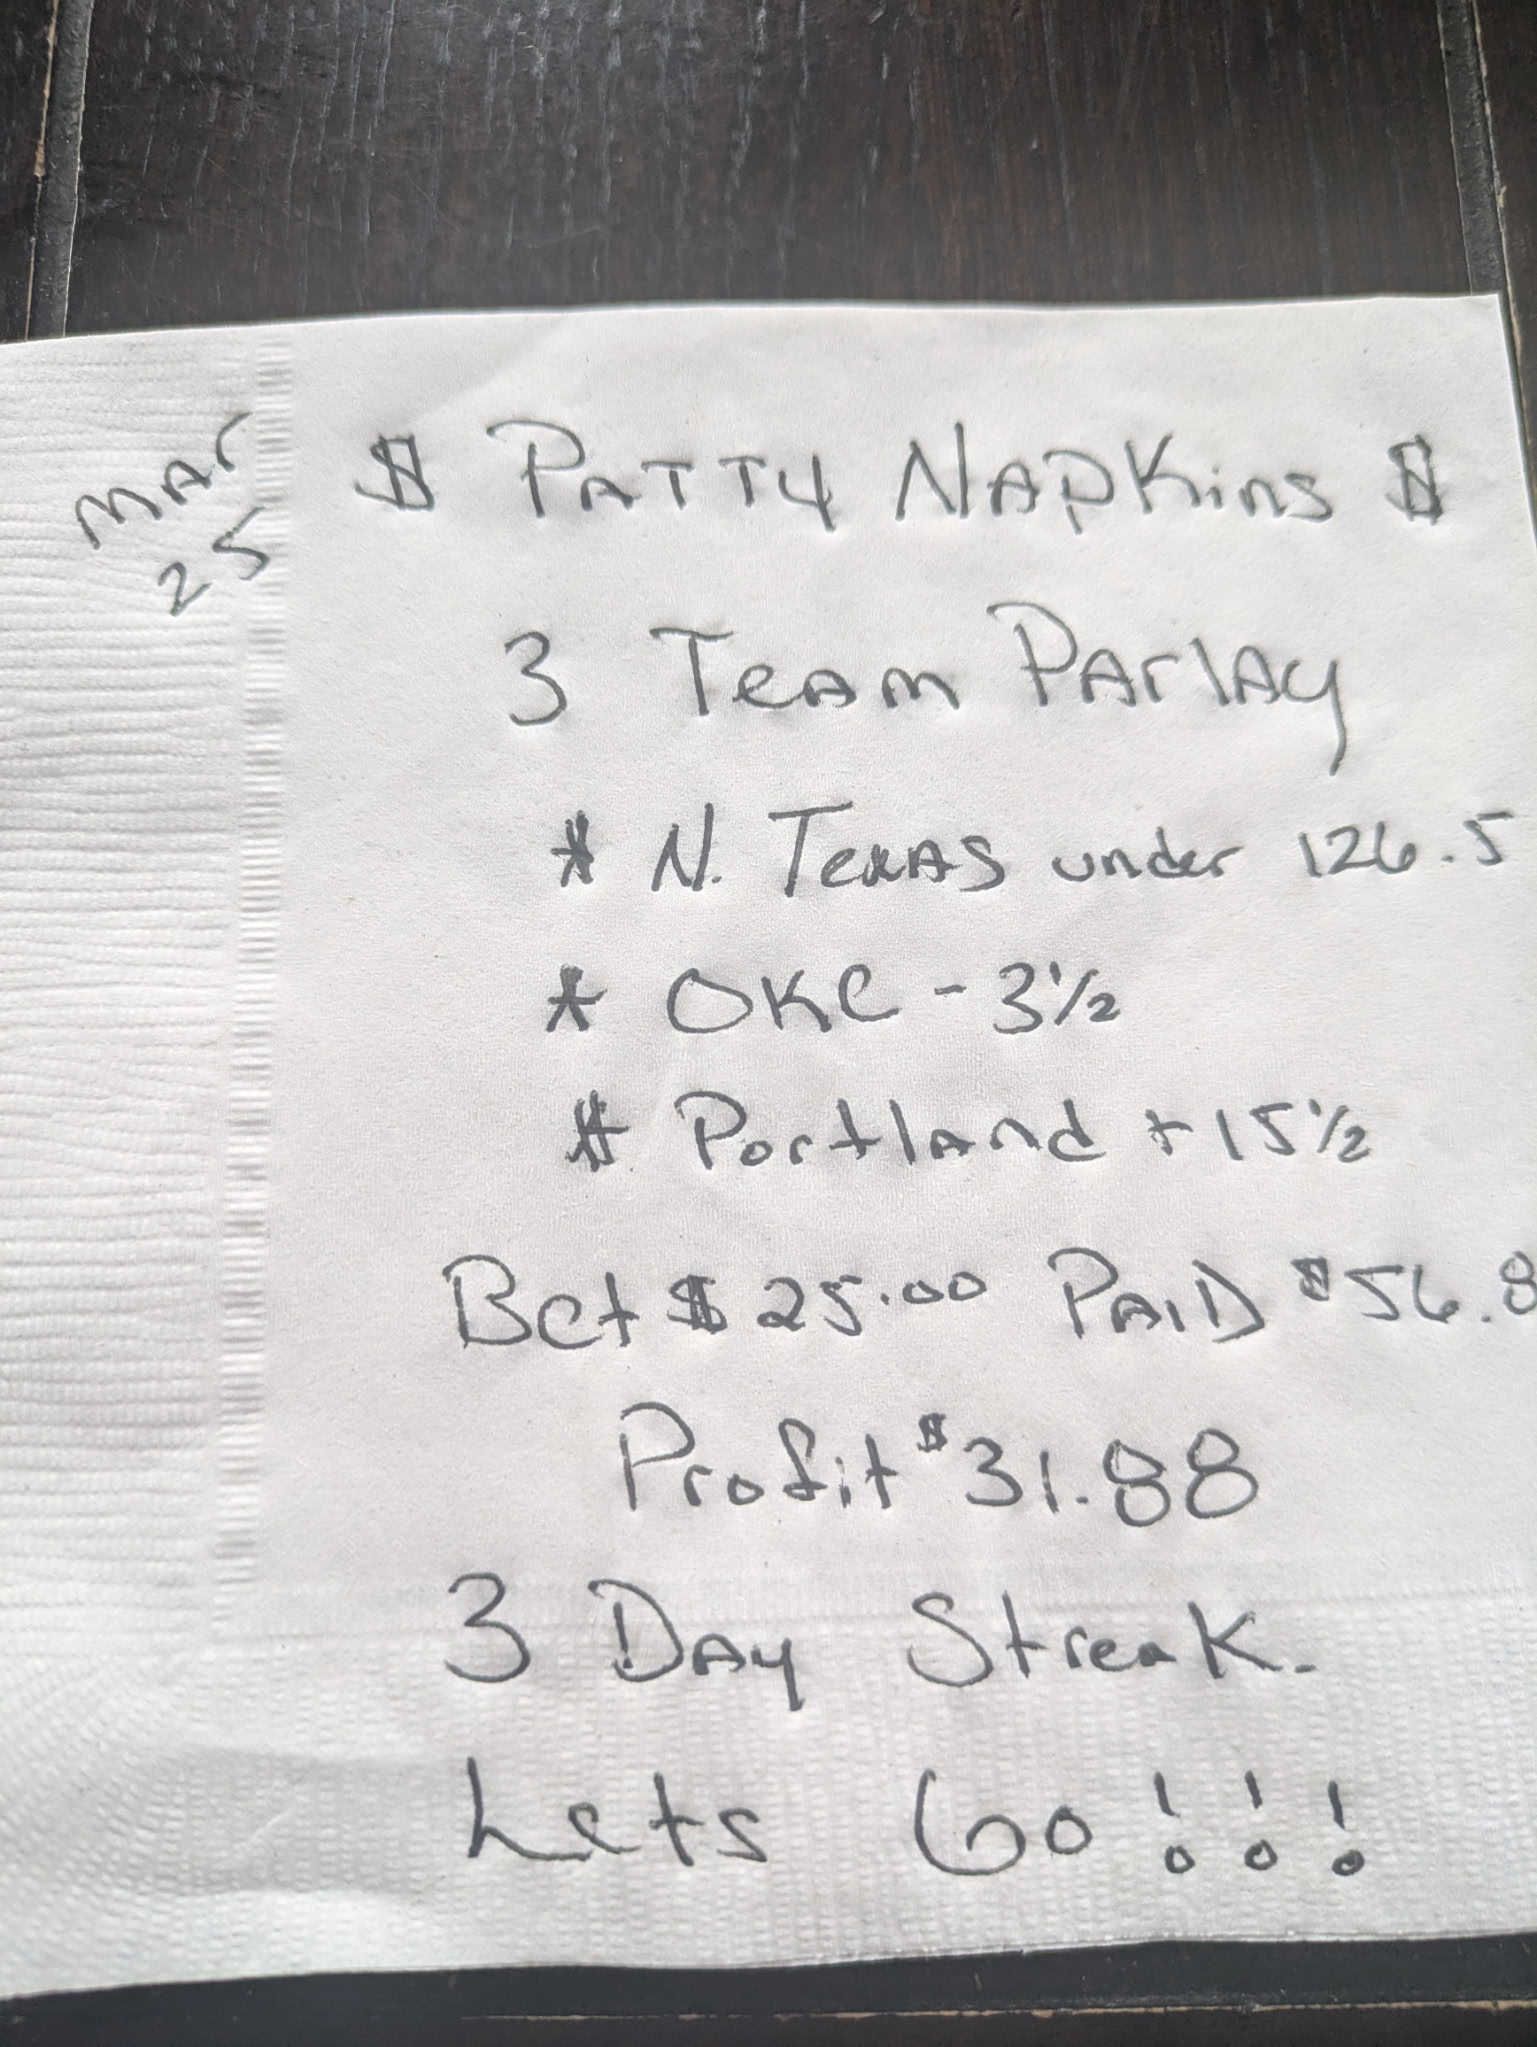 Mar
25
$ Patty Napkins $
3 Team Parlay
* N. Texas under 126.5
* OKC - 3 1/2
* Portland + 15 1/2
Bet $ 25.00 PAID $56.8
Profit $31.88
3 Day Streak.
Lets Go!!!